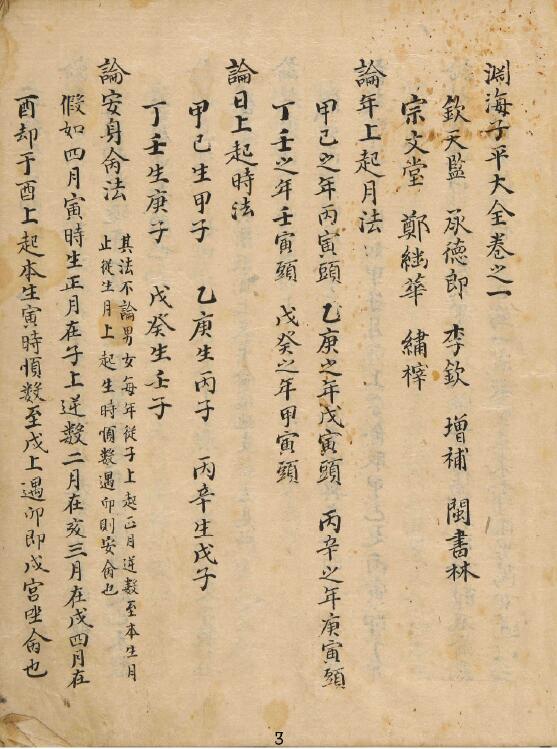 淵海子平大全卷之一
欽天監　承德郎　李欽　增補　閩書林
宗文堂　鄭繼華　繡梓
論年上起月法
甲己之年丙寅頭　乙庚之年戊寅頭　丙辛之年庚寅頭
丁壬之年壬寅頭　戊癸之年甲寅頭
論日上起時法
甲己生甲子　乙庚生丙子　丙辛生戊子
丁壬生庚子　戊癸生壬子
論安身命法
其法不論男女每年從子上起正月逆數至本生月
止從生月上起生時順數遇卯則安命也
假如四月寅時生正月在子上逆數二月在亥三月在戌四月在
酉却于酉上起本生寅時順數至戌上遇卯即戌宮坐命也
3